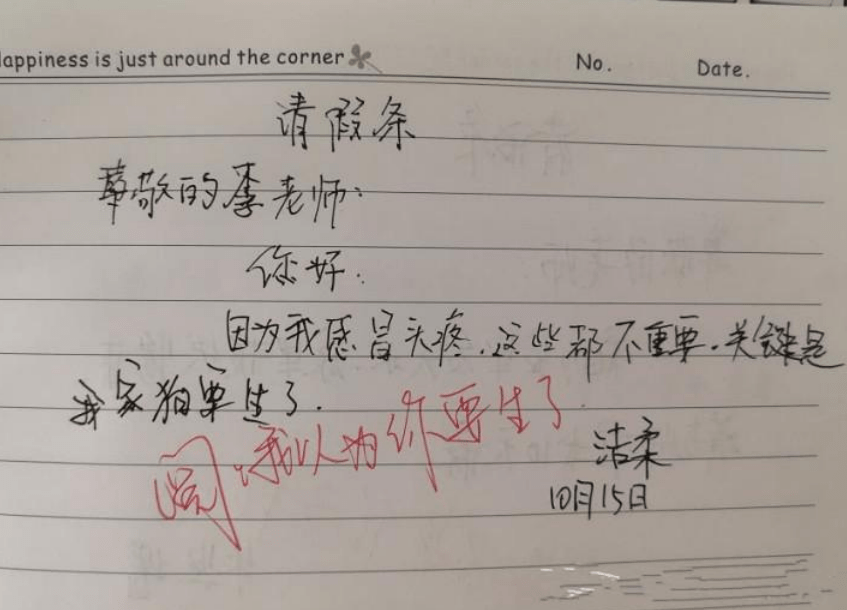 appiness is just around the corner
No.
Date.
请假条
尊敬的李老师:
你好.
因为我感冒头疼.这些都不重要.关键是
我家狗要生了.
阅,我以为你要生了.
洁柔
10月15日